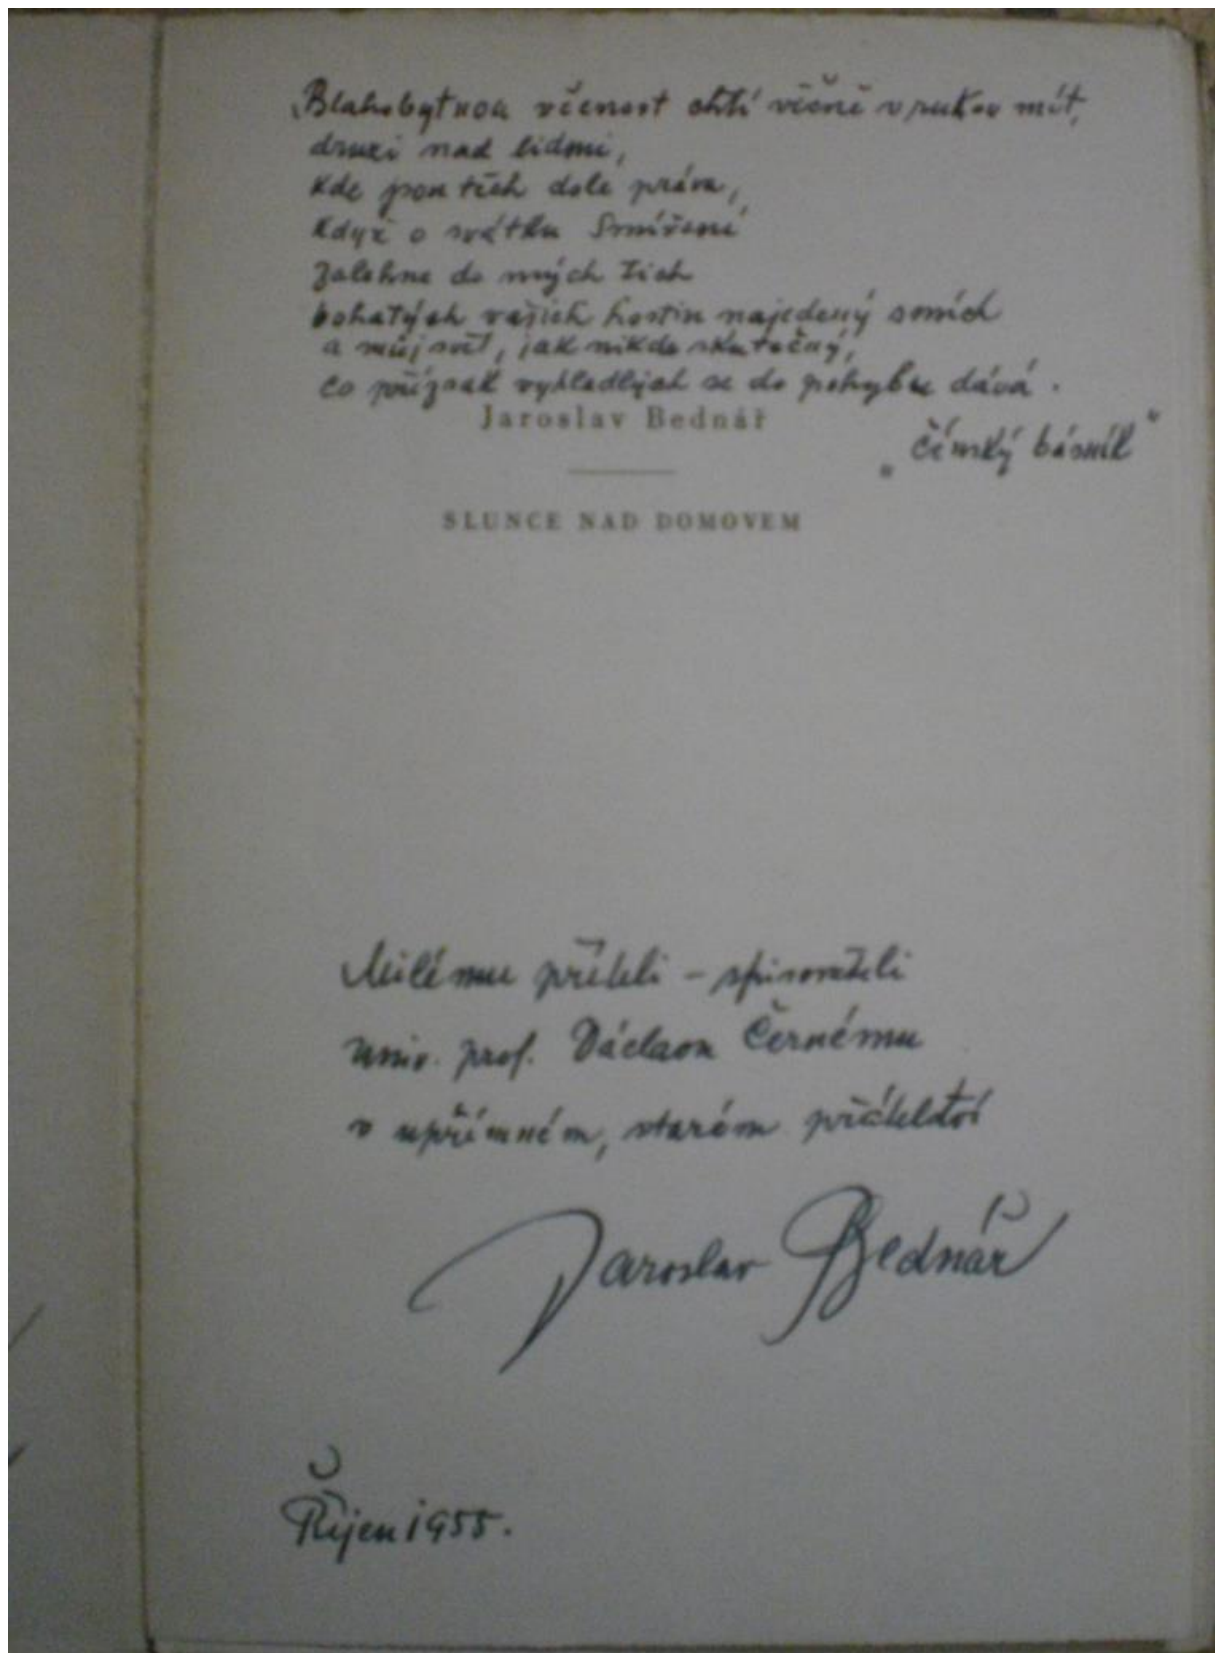 „Blahobytnou věčnost chtí věčně v rukou mít,
druzí nad lidmi,
kde jsou těch dole práva,
když o svátku Smíření
zalehne do mých tich
bohatých vašich hostin najedený smích
a můj svět, jak nikdo skutečný,
co přízrak vyhladlých se do pohybu dává.
Jaroslav Bednář
„Čínský básník“
SLUNCE NAD DOMOVEM
Milému příteli – spisovateli
univ. prof. Václavu Černému
v upřímném, starém přátelství
Jaroslav Bednář
Říjen 1955.